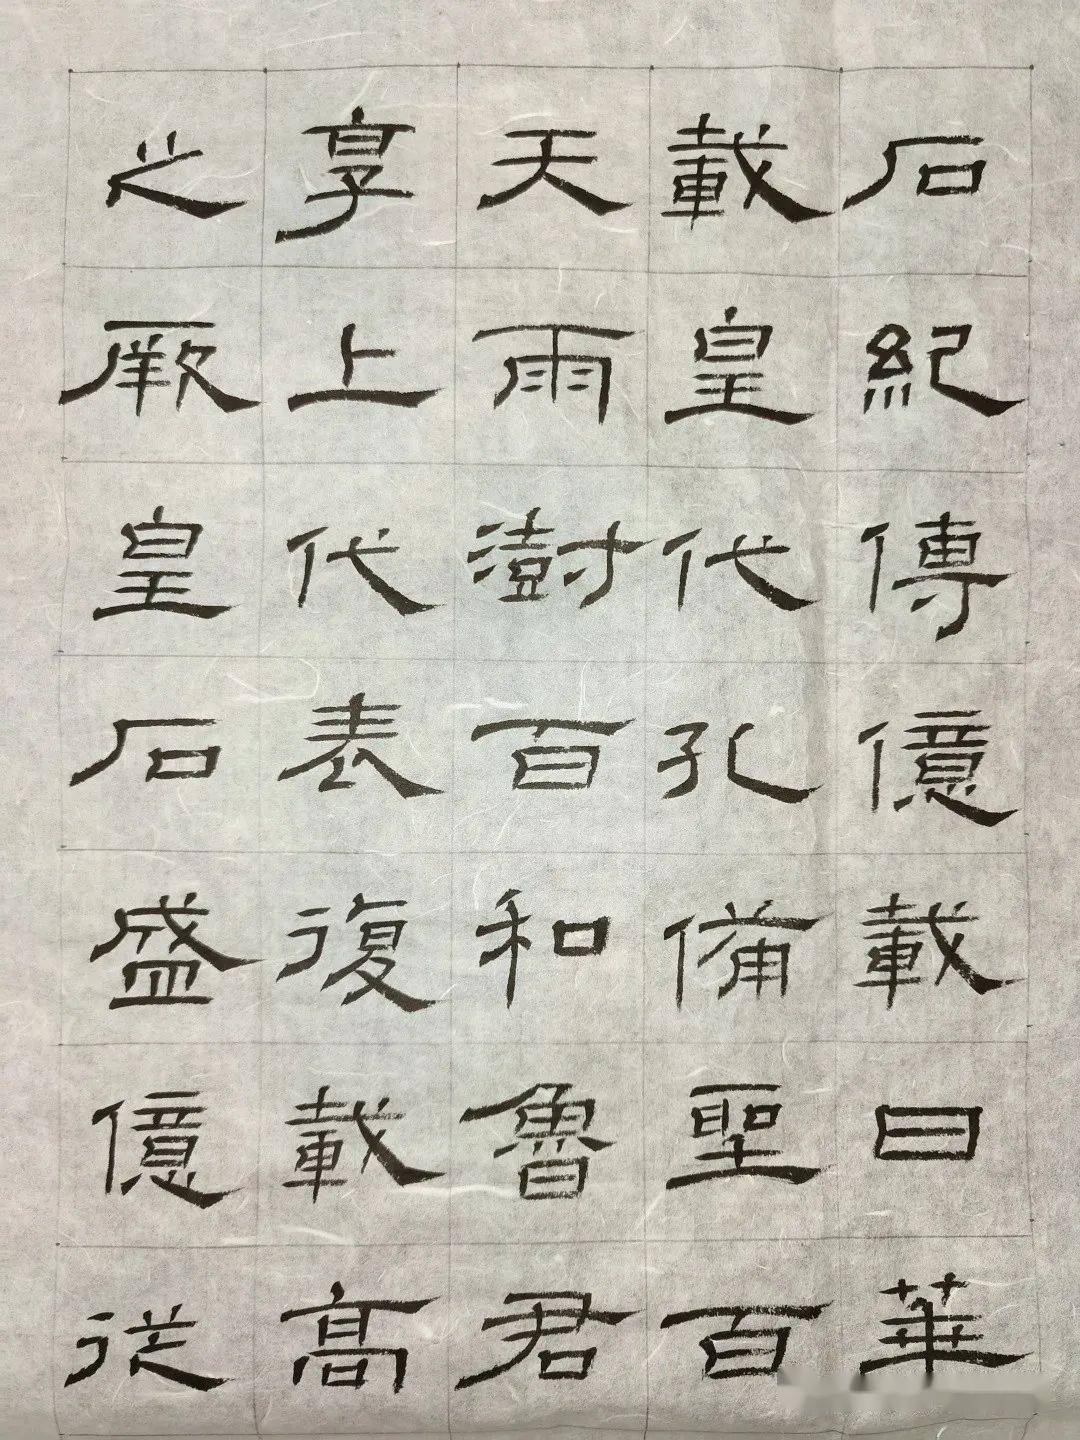 石紀傳億載曰華
載皇代孔備聖百
天雨澍百和魯君
享上代表復載高
之厥皇石盛億從